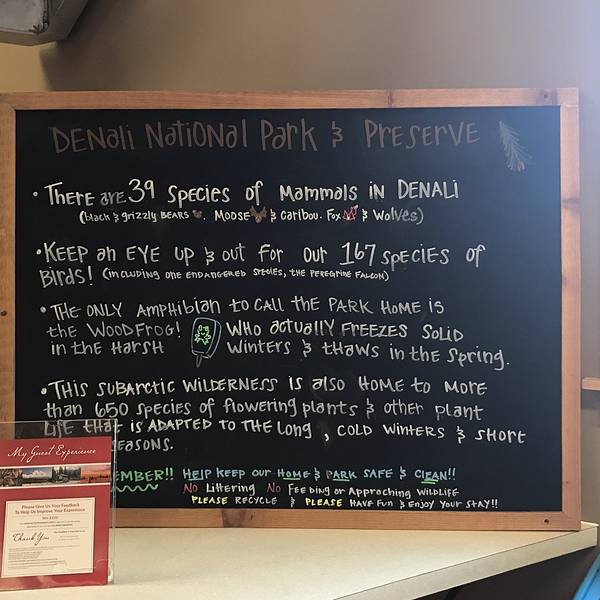 DENALI NATIONAL PARK & PRESERVE
• THERE are 39 SPECIES of MAMMALS IN DENALI
(black & grizzly BEARS, MOOSE & CARIBOU. FOX & WOLVES)
• KEEP an EYE UP & OUT FOR OUR 167 SPECIES OF
BIRDS! (INCLUDING ONE ENDANGERED SPECIES, THE PEREGRINE FALCON)
• THE ONLY AMPHIBIAN to CALL THE PARK HOME IS
the WOODFROG! WHO actually FREEZES SOLID
in the HARSH WINTERS & THAWS IN the SPRING.
• THIS SUBARCTIC WILDERNESS IS also HOME to MORE
than 650 SPECIES of flowering plants & other plant
LIFE that is ADAPTED TO THE LONG, COLD WINTERS & SHORT
EASONS.
EMBER!! HELP KEEP OUR HOME & PARK SAFE & CLEAN!!
NO Littering NO FEEDING or APPROCHING WILDLIFE
PLEASE RECYCLE & PLEASE HAVE FUN & ENJOY YOUR STAY!!
My Guest Experience
Please Give Us Your Feedback
To Help Us Improve Your Experience
Thank You